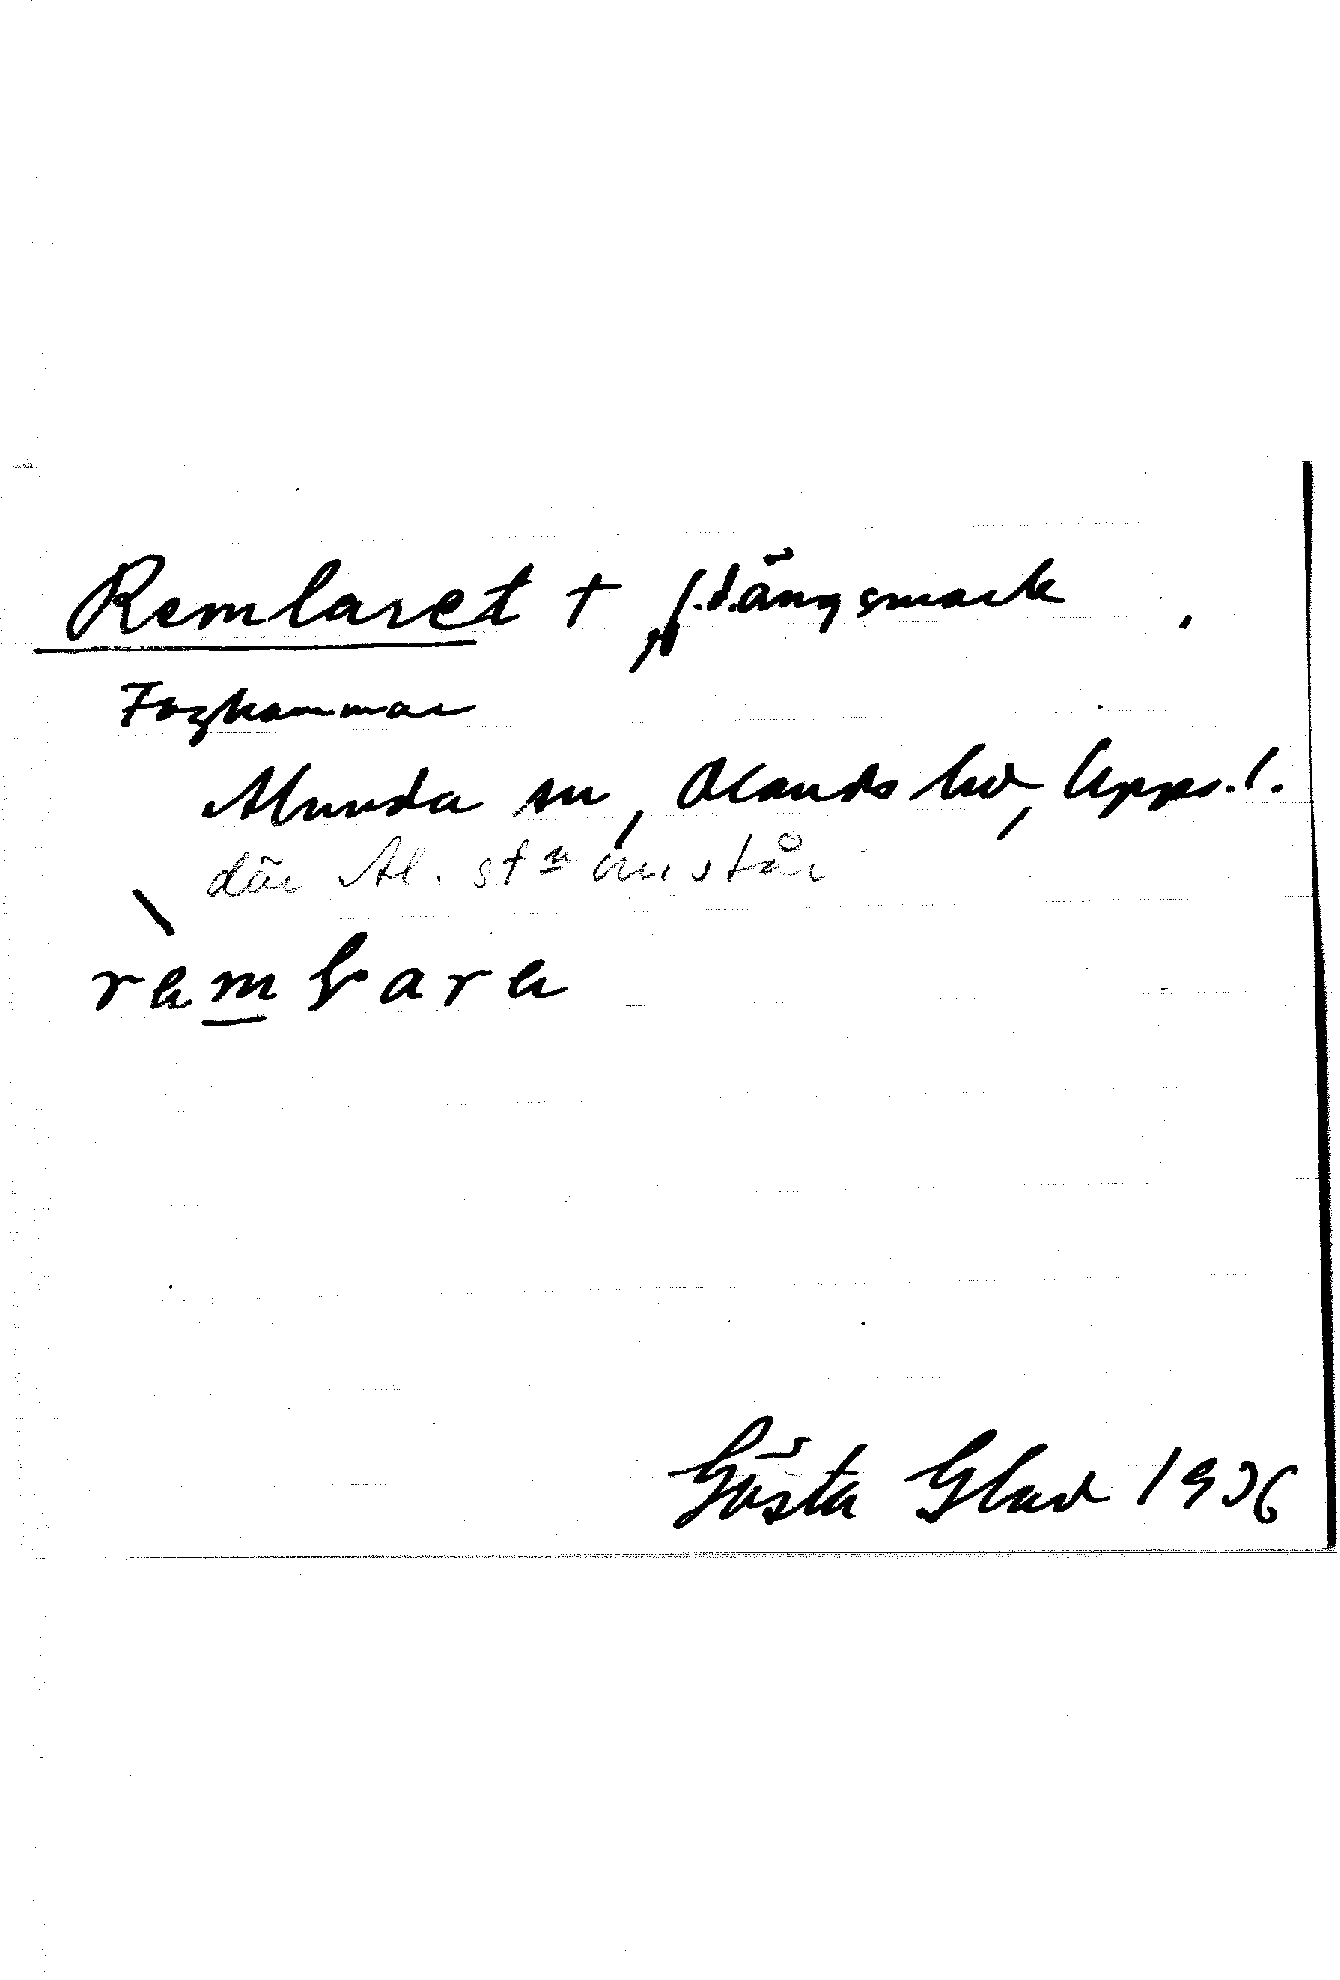 Remlaret + , f.d. ängsmark
Foghammar
Alunda sn, Olands hd, Upps. l.
där Al. stn nu står
ramlara
Gösta Glad 1936